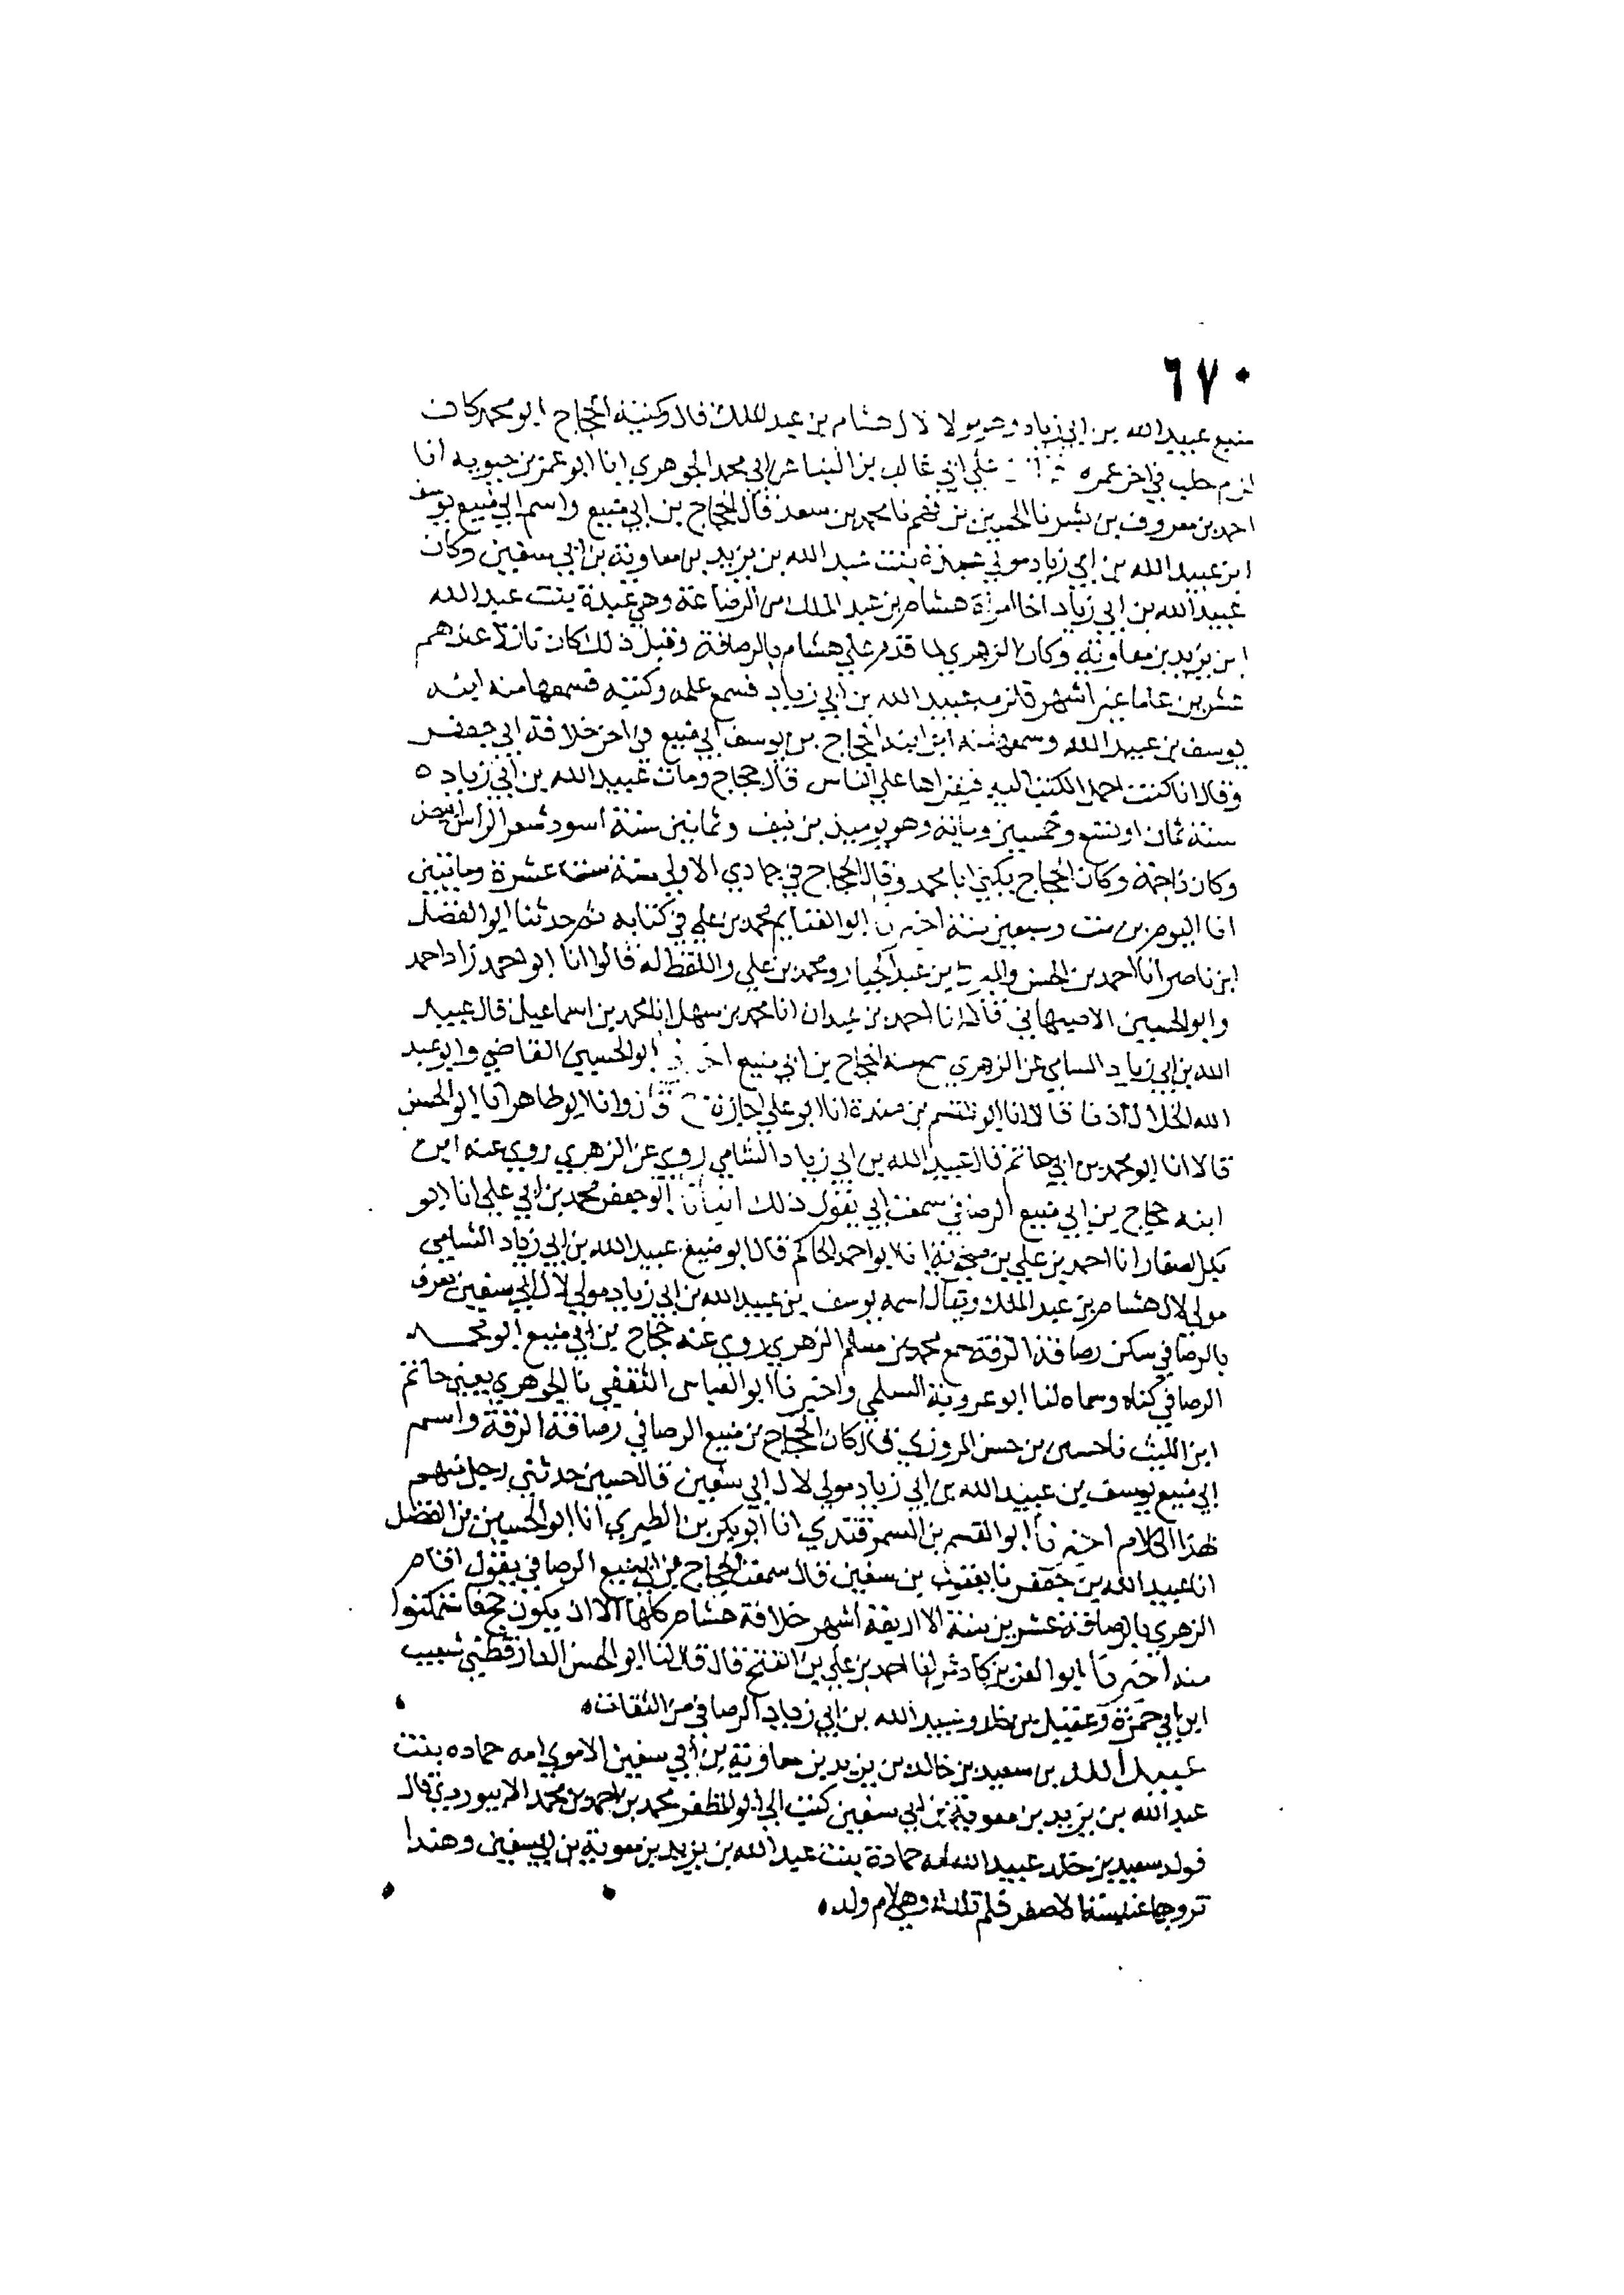 ٦٧٠
منيع عبيد الله بن ابي زياد وهو مولا لال هشام بن عبد الملك قال وكنية الحجاج ابو محمد كان
لزم حلب في اخر عمره على ابي غالب بن البنا عن ابي محمد الجوهري انا ابو عمر بن حيويه انا
احمد بن معروف بن بشر نا الحسين بن فهم نا محمد بن سعد قال الحجاج بن ابي منيع واسم ابي منيع يوسف
ابن عبيد الله بن ابي زياد مولي عبدة بنت عبد الله بن يزيد بن معاوية بن ابي سفين وكان
عبيد الله بن ابي زياد اخا امراة هشام بن عبد الملك من الرضاعة وهي عبدة بنت عبد الله
ابن يزيد بن معاوية وكان الزهري لما قدم علي هشام بالرصافة وقبل ذلك كان نازلا عندهم
عشرين عاما غير اشهر فلزمه عبيد الله بن ابي زياد فسمع علمه وكتبه فسمعها منه ابنه
يوسف بن عبيد الله وسمعها منه ابن ابنه الحجاج بن يوسف ابي منيع في اخر خلافة ابي جعفر
وقال انا كنت احمل الكتب اليه فيقراها علي الناس قال حجاج ومات عبيد الله بن ابي زياد ه
سنة ثمان او تسع وخمسين ومائة وهو يوميذ بن نيف وثمانين سنة اسود شعر الراس ابيض
وكان ذا جمة وكان الحجاج يكنى ابا محمد وقال الحجاج في جمادي الاولي سنة ست عشرة ومايتين
انا اليوم بن ست وسبعين سنة اخبرنا ابو الغنايم محمد بن علي في كتابه ثم حدثنا ابو الفضل
ابن ناصر انا احمد بن الحسن والمبارك بن عبد الجبار ومحمد بن علي واللفظ له قالوا انا ابو احمد زاد احمد
وابو الحسين الاصبهاني قالا انا احمد بن عبدان انا محمد بن سهل انا محمد بن اسماعيل قال عبيد
الله بن ابي زياد الشامي عن الزهري سمع منه الحجاج بن ابي منيع اخبرنا ابو الحسين القاضي وابو عبد
الله الخلال اذنا قالا انا ابو القسم بن مندة انا ابو علي اجازة ح قال وانا ابو طاهر انا ابو الحسن
قالا انا ابو محمد بن ابي حاتم قال عبيد الله بن ابي زياد الشامي روي عن الزهري روي عنه ابن
ابنه حجاج بن ابي منيع الرصافي سمعت ابي يقول ذلك انبانا ابو جعفر محمد بن ابي علي انا ابو
بكر الصفار انا احمد بن علي بن منجويه انا ابو احمد الحاكم قال ابو منيع عبيد الله بن ابي زياد الشامي
مولي لال هشام بن عبد الملك ويقال اسمه يوسف بن عبيد الله بن ابي زياد مولي لال ابي سفين يعرف
بالرصافي سكن رصافة الرقة سمع محمد بن مسلم الزهري روي عنه حجاج بن ابي منيع ابو محمد
الرصافي كناه وسماه لنا ابو عروبة السلمي واخبرنا ابو العباس الثقفي نا الجوهري يعني حاتم
ابن الليث نا حسين بن حسن المروزي قال كان الحجاج بن منيع الرصافي رصافة الرقة واسم
ابي منيع يوسف بن عبيد الله بن ابي زياد مولي لال ابي سفين قال حسين حدثني رجل منهم
بهذا الكلام اخبرنا ابو القسم بن السمرقندي انا ابو بكر بن الطبري انا ابو الحسين بن الفضل
انا عبيد الله بن جعفر نا يعقوب بن سفين قال سمعت الحجاج بن ابي منيع الرصافي يقول اقام
الزهري بالرصافة عشرين سنة الا اربعة اشهر خلافة هشام كلها الا ان يكون
منه اخبرنا ابو العز بن كادش انا احمد بن علي بن الفتح قال قال لنا ابو الحسن الدارقطني شعيب
ابن ابي حمزة وعقيل بن خالد وعبيد الله بن ابي زياد الرصافي من الثقات ه
عبيد الله بن سعيد بن خالد بن يزيد بن معاوية بن ابي سفين الاموي امه حماده بنت
عبد الله بن يزيد بن معوية بن ابي سفين كتب الي ابو المظفر محمد بن احمد بن محمد الابيوردي قال
فولد سعيد بن خلد عبيد الله امه حمادة بنت عبد الله بن يزيد بن معوية بن ابي سفين وهندا
تزوجها الاصفر فلم تلد له وهي لام ولد ه